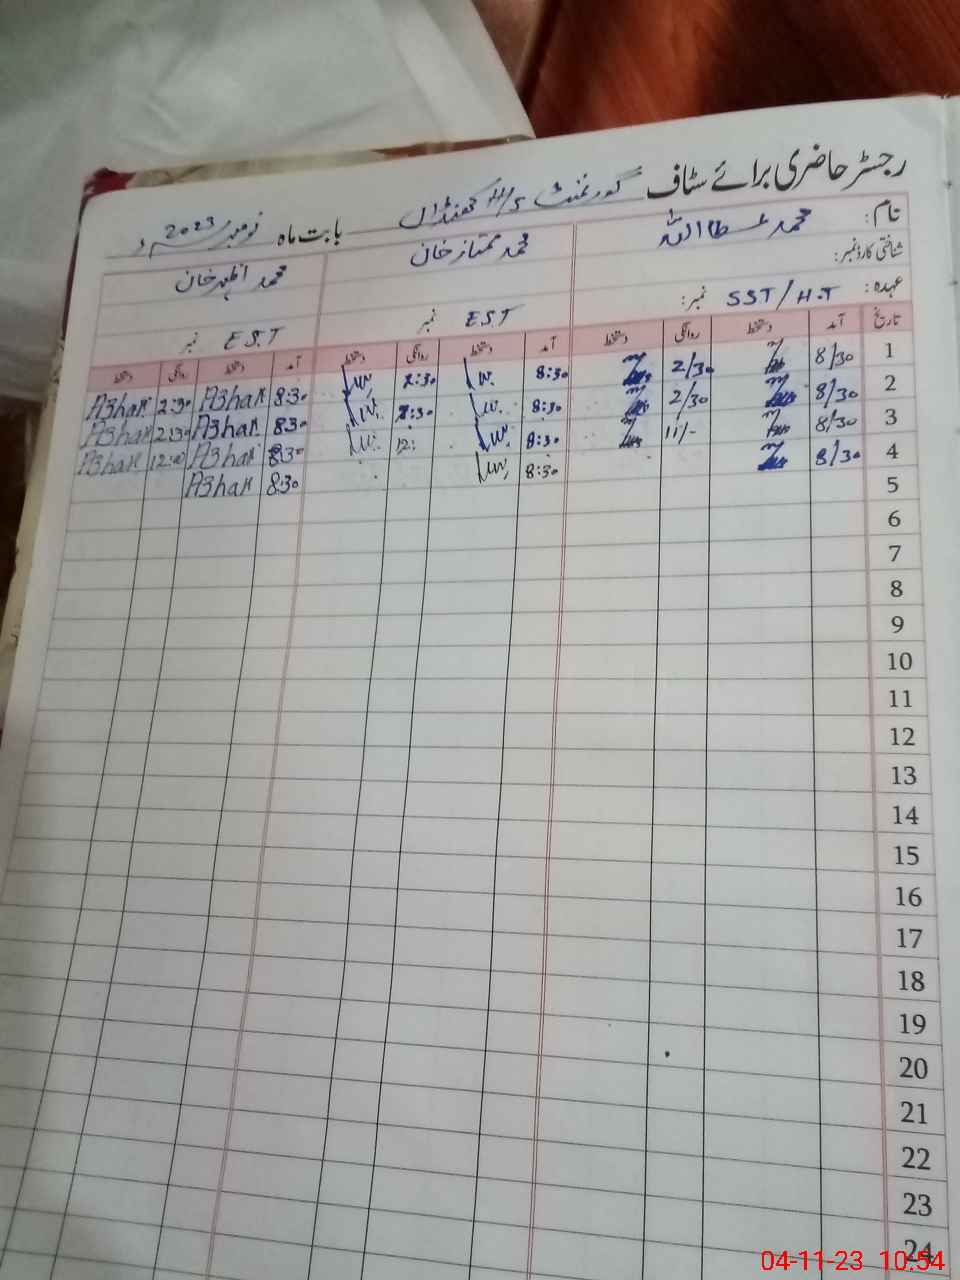 رجسٹر حاضری برائے سٹاف گورنمنٹ H/S کھنڈال بابت ماہ نومبر 2023ء
نام: محمد عطااللہ محمد ممتاز خان محمد اظہر خان
شناختی کارڈ نمبر:
عہدہ: SST/H.T نمبر: EST نمبر EST نمبر
تاریخ آمد دستخط روانگی دستخط آمد دستخط روانگی دستخط آمد دستخط روانگی دستخط
1 8/30 2/30 8:30 2:30 8:30 Azhar 2:30 Azhar
2 8/30 2/30 8:30 2:30 8:30 Azhar 2:30 Azhar
3 8/30 11/- 8:30 12: 8:30 Azhar 12:00 Azhar
4 8/30 8:30 8:30 Azhar
5
6
7
8
9
10
11
12
13
14
15
16
17
18
19
20
21
22
23
24
04-11-23 10:54